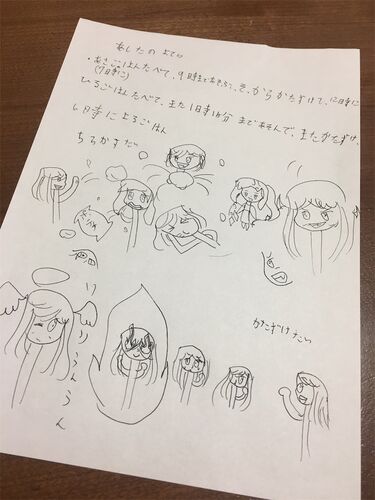 あしたの よてい
・あさごはんたべて、9時まであそぶ、き、からかたずけて、12時に
(7日寺に)
ひるごはんたべて、また1日寺18分 まであそんで、またかたずけ、
6日寺によるごはん
ちらかすだ
かたずけたい
うんうん